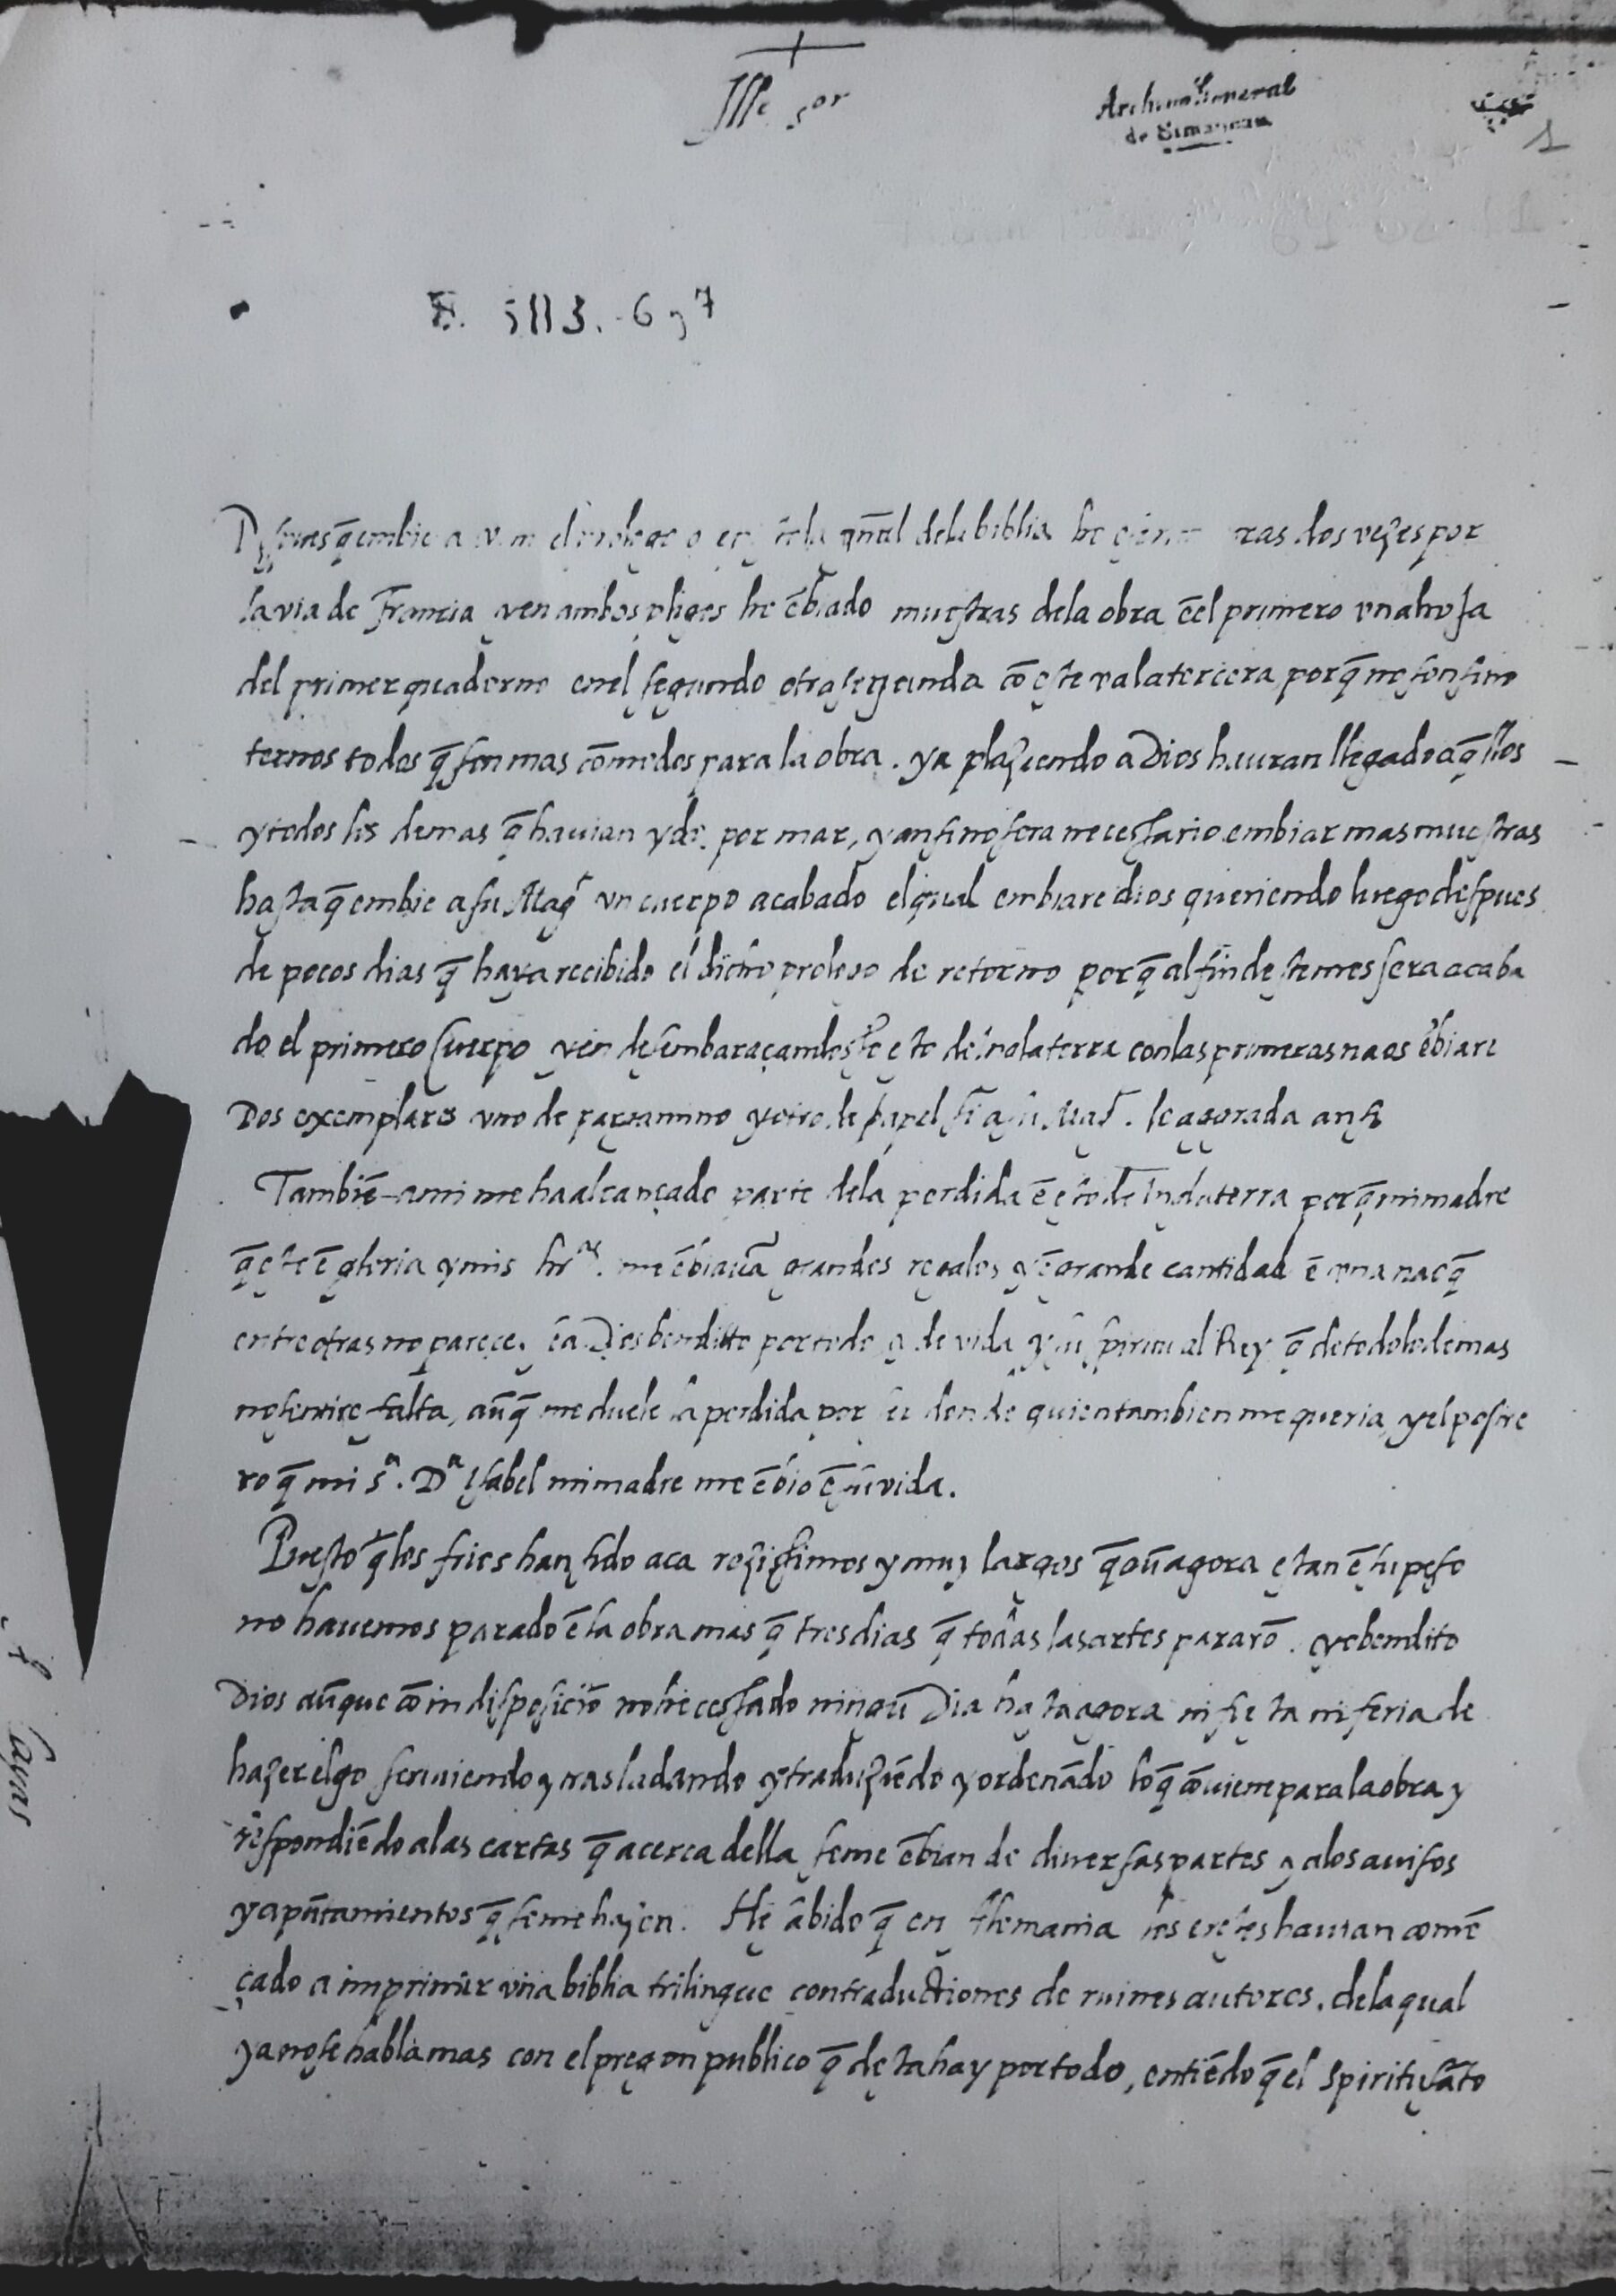 Ill.e s.or
Archivo General
de Simancas
1
5113. 6 y 7
q̄ embie a v. m. el prologo dela biblia he ras dos vezes por
la via de Francia y en ambos pliegos he ēbiado muestras dela obra ē el primero vna hoja
del primer quaderno en el segundo otra segunda cō este va la tercera porq̄ no son sino
ternos todos q̄ son mas cōmodos para la obra. ya plaziendo a Dios hauran llegado aq̄llos
y todos los demas q̄ hauian ydo por mar, y ansi no sera necessario embiar mas muestras
hasta q̄ embie a su Mag.t vn cuerpo acabado el qual embiare dios queriendo luego despues
de pocos dias q̄ haya recibido el dicho prologo de retorno porq̄ al fin deste mes sera acaba
do el primero cuerpo y en desembaraçandose esto de inglaterra con las primeras naos ēbiare
Dos exemplares vno de pargamino y otro de papel si a su Mag.t le agrada ansi
Tambiē a mi me ha alcançado parte dela perdida ē esto de Inglaterra porq̄ mi madre
q̄ esté ē gloria y mis hr.as me ēbiauā grandes regalos y ē grande cantidad ē vna nao q̄
entre otras no parece. sea Dios bendito por todo y de vida y su spiritu al Rey q̄ de todo lo demas
no sentire falta, aūq̄ me duele la perdida por ser don de quien tambien me queria, y el postre
ro q̄ mi s.a D.a Isabel mi madre me ēbio ē su vida.
Puesto q̄ los frios han sido aca rezissimos y muy largos q̄ aū agora estan ē su peso
no hauemos parado ē la obra mas q̄ tres dias q̄ todas las artes pararō. yo bendito
Dios aūque cō indisposiciō no he cessado ningū Dia hasta agora ni fiesta ni feria de
hazer algo scriuiendo y trasladando y traduziēdo y ordenādo lo q̄ cōuiene para la obra y
respondiēdo a las cartas q̄ acerca della se me ēbian de diuersas partes y a los auisos
y apūtamientos q̄ se me hazen. He sabido q̄ en Alemania los hauian comē
çado a imprimir vna biblia trilingue con traductiones de ruines autores. dela qual
ya no se habla mas con el pregon publico q̄ desta hay por todo, entiēdo q̄ el spiritu sāto